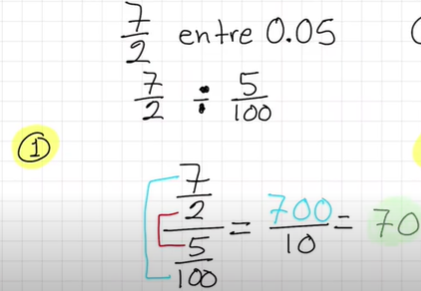 7/2 entre 0.05
7/2 ÷ 5/100
1
7/2 / 5/100 = 700/10 = 70